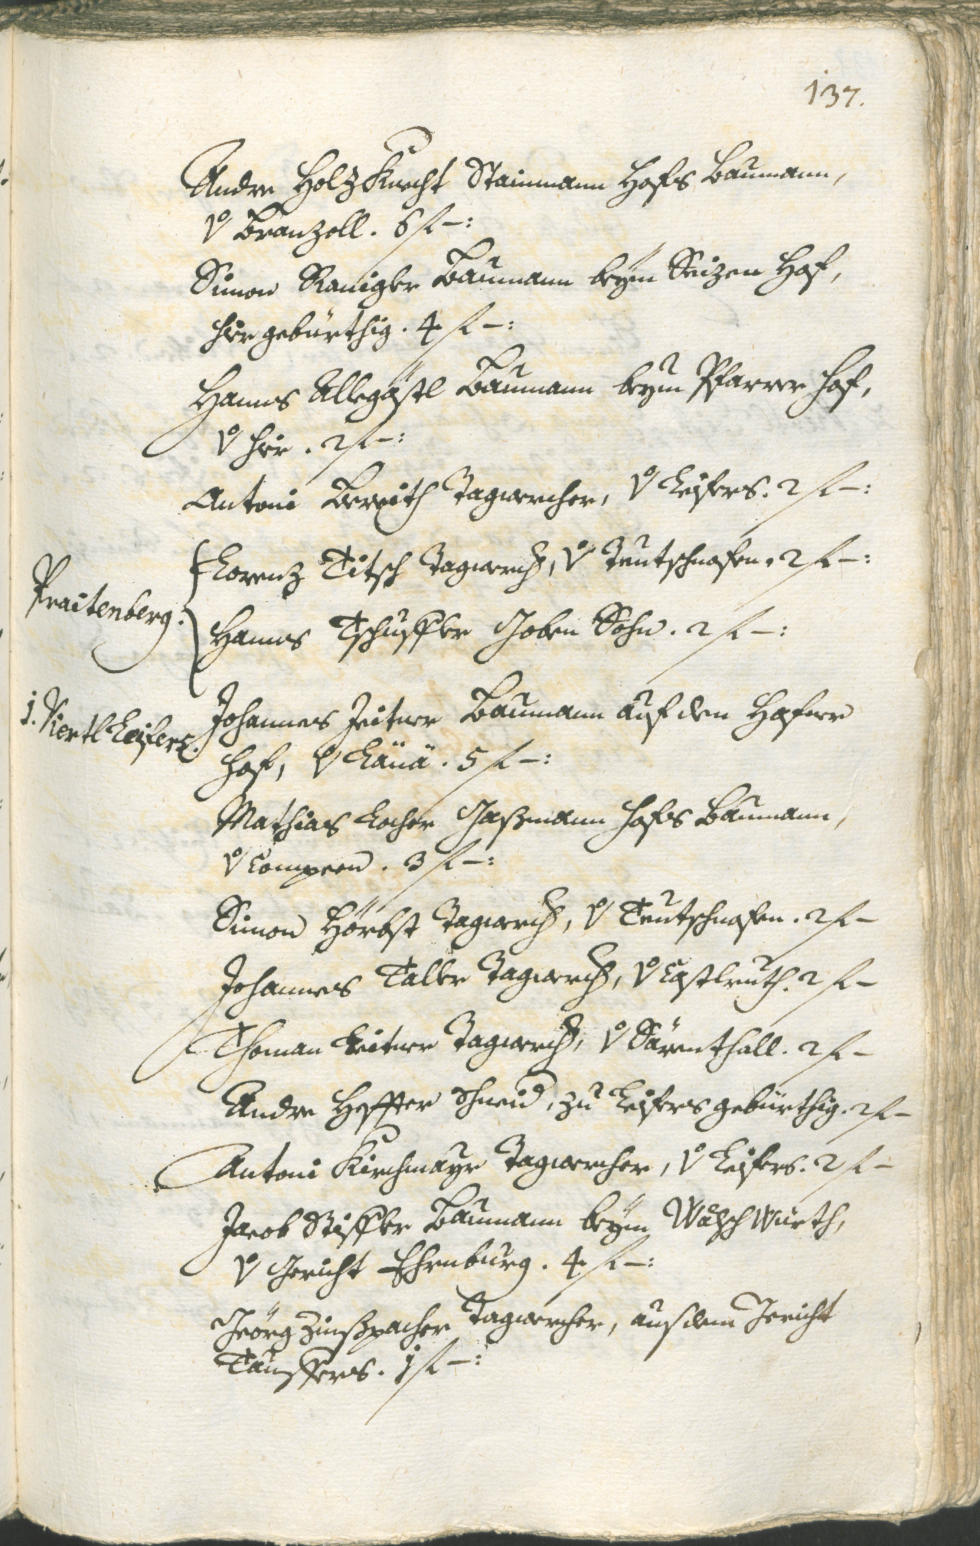 137.
Andre Holzknecht Stainmann Hofs Baumann,
v Branzoll. 6 f –:
Simon Raniger Baumann beÿm Seizen Hof,
hir gebürthig. 4 f –:
Hanns Allegöstl Baumann beÿm Pfarrer hof,
v hir. 2 f –:
Antoni Tagwercher, v Leifers. 2 f –:
Praitenberg:
Lorenz Titsch Tagwerch, v Teutschnofen. 2 f –:
Hanns Tschuffer Sohn. 2 f –:
j. Viertl Leifers.
Johannes Zeitner Baumann auf den Hofner
hof, v. 5 f –:
Mathias Locher Gassmann hofs Baumann,
v. 3 f –:
Simon Hörbst Tagwerch, v Teutschnofen. 2 f –
Johannes Taller Tagwerch, v Castlruth. 2 f –
Thoman Leitner Tagwerch, v Särenthall. 2 f –
Andre Hoffer Schneid, zu Leifers gebürthig. 2 f –
Antoni Kirchmayr Tagwercher, v Leifers. 2 f –
Jacob Stiffler Baumann beÿm Wälsch Würth,
v Gericht Ehrnburg. 4 f –:
Geörg Zinsspacher Tagwercher, aus dem Gericht
Tauffers. j f –: